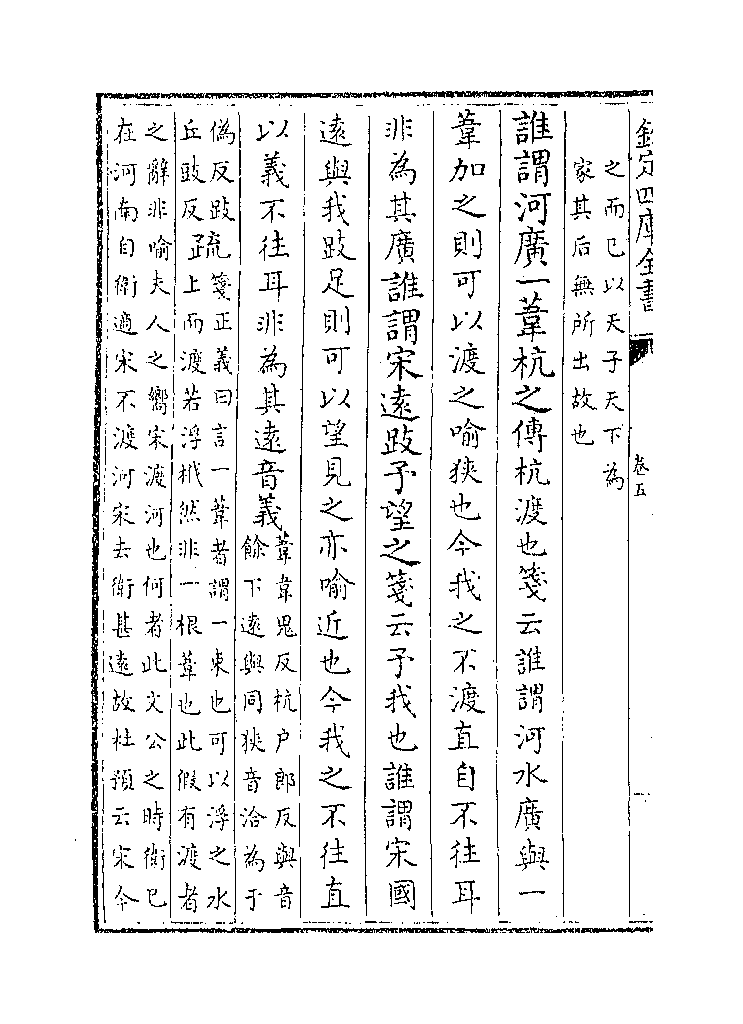 欽定四庫全書
卷五
之而已以天子天下為
家其后無所出故也
誰謂河廣一葦杭之傳杭渡也箋云誰謂河水廣與一
葦加之則可以渡之喻狹也今我之不渡直自不往耳
非為其廣誰謂宋遠跂予望之箋云予我也誰謂宋國
遠與我跂足則可以望見之亦喻近也今我之不往直
以義不往耳非為其遠音義
葦韋鬼反杭户郎反與音
餘下遠與同狹音洽為于
偽反跂
丘豉反
疏
箋正義曰言一葦者謂一束也可以浮之水
上而渡若浮栰然非一根葦也此假有渡者
之辭非喻夫人之嚮宋渡河也何者此文公之時衛已
在河南自衛適宋不渡河宋去衛甚遠故杜預云宋今